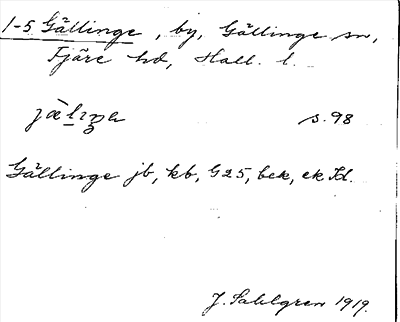 1-5 Gällinge, by, Gällinge sn,
Fjäre hd, Hall. l.
s. 98
Gällinge jb, kb, G25, bek, ek Kd.
J. Sahlgren 1919.